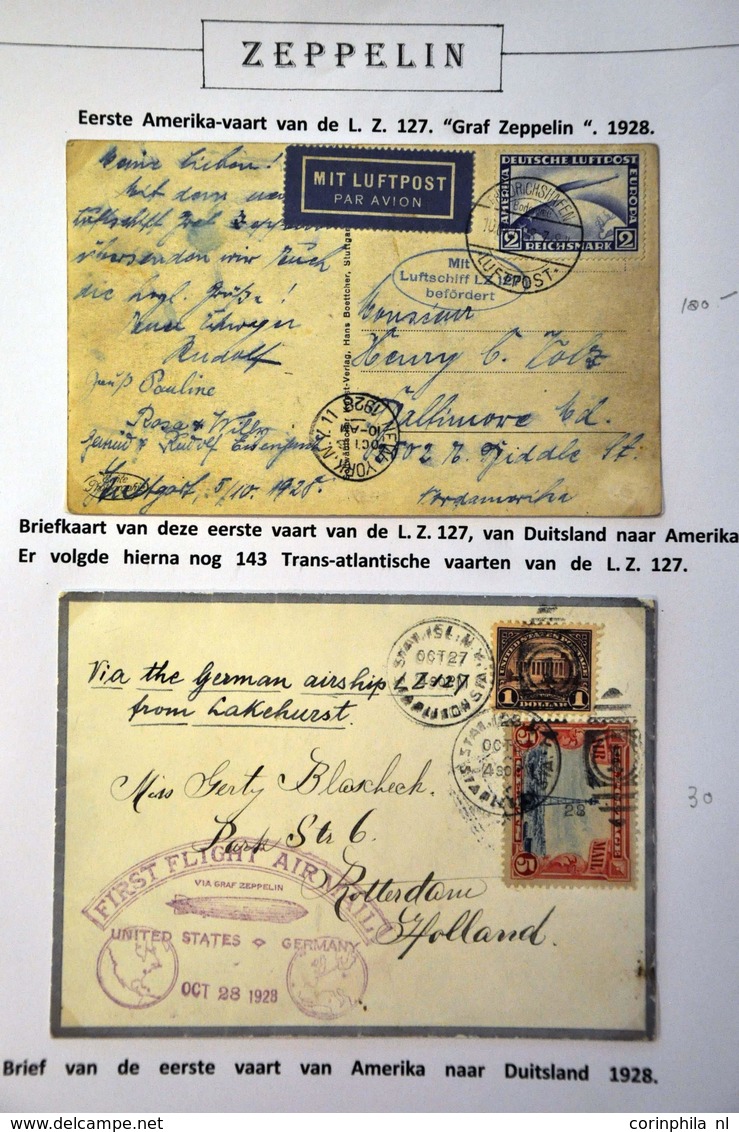 ZEPPELIN
Eerste Amerika-vaart van de L. Z. 127. "Graf Zeppelin ". 1928.
Meine Lieben!
Mit dem
Luftschiff Graf Zeppelin
übersenden wir Euch
die hrzl. Grüße!
Rudolf
Gruß Pauline
Rosa + Willy
Stuttgart, 5/10. 1928.
MIT LUFTPOST
PAR AVION
DEUTSCHE LUFTPOST
AMERIKA
EUROPA
2 REICHSMARK 2
FRIEDRICHSHAFEN
LUFTPOST
Mit
Luftschiff LZ 127
befördert
Hans Boettcher, Stuttgart
NEW YORK, N.Y. 11
OCT
10-AM
1928
Monsieur
Henry C.
Baltimore Md.
St.
Nordamerika
180-
Briefkaart van deze eerste vaart van de L. Z. 127, van Duitsland naar Amerika
Er volgde hierna nog 143 Trans-atlantische vaarten van de L. Z. 127.
Via the German airship LZ 127
from Lakehurst.
OCT 27
UNITED STATES POSTAGE
1 DOLLAR 1
OCT
28
5 5
AIR MAIL
Miss Gerty Blascheck.
Park Str 6.
Rotterdam
Holland.
FIRST FLIGHT AIR MAIL
VIA GRAF ZEPPELIN
UNITED STATES GERMANY
OCT 28 1928
30
Brief van de eerste vaart van Amerika naar Duitsland 1928.
corinphila nl